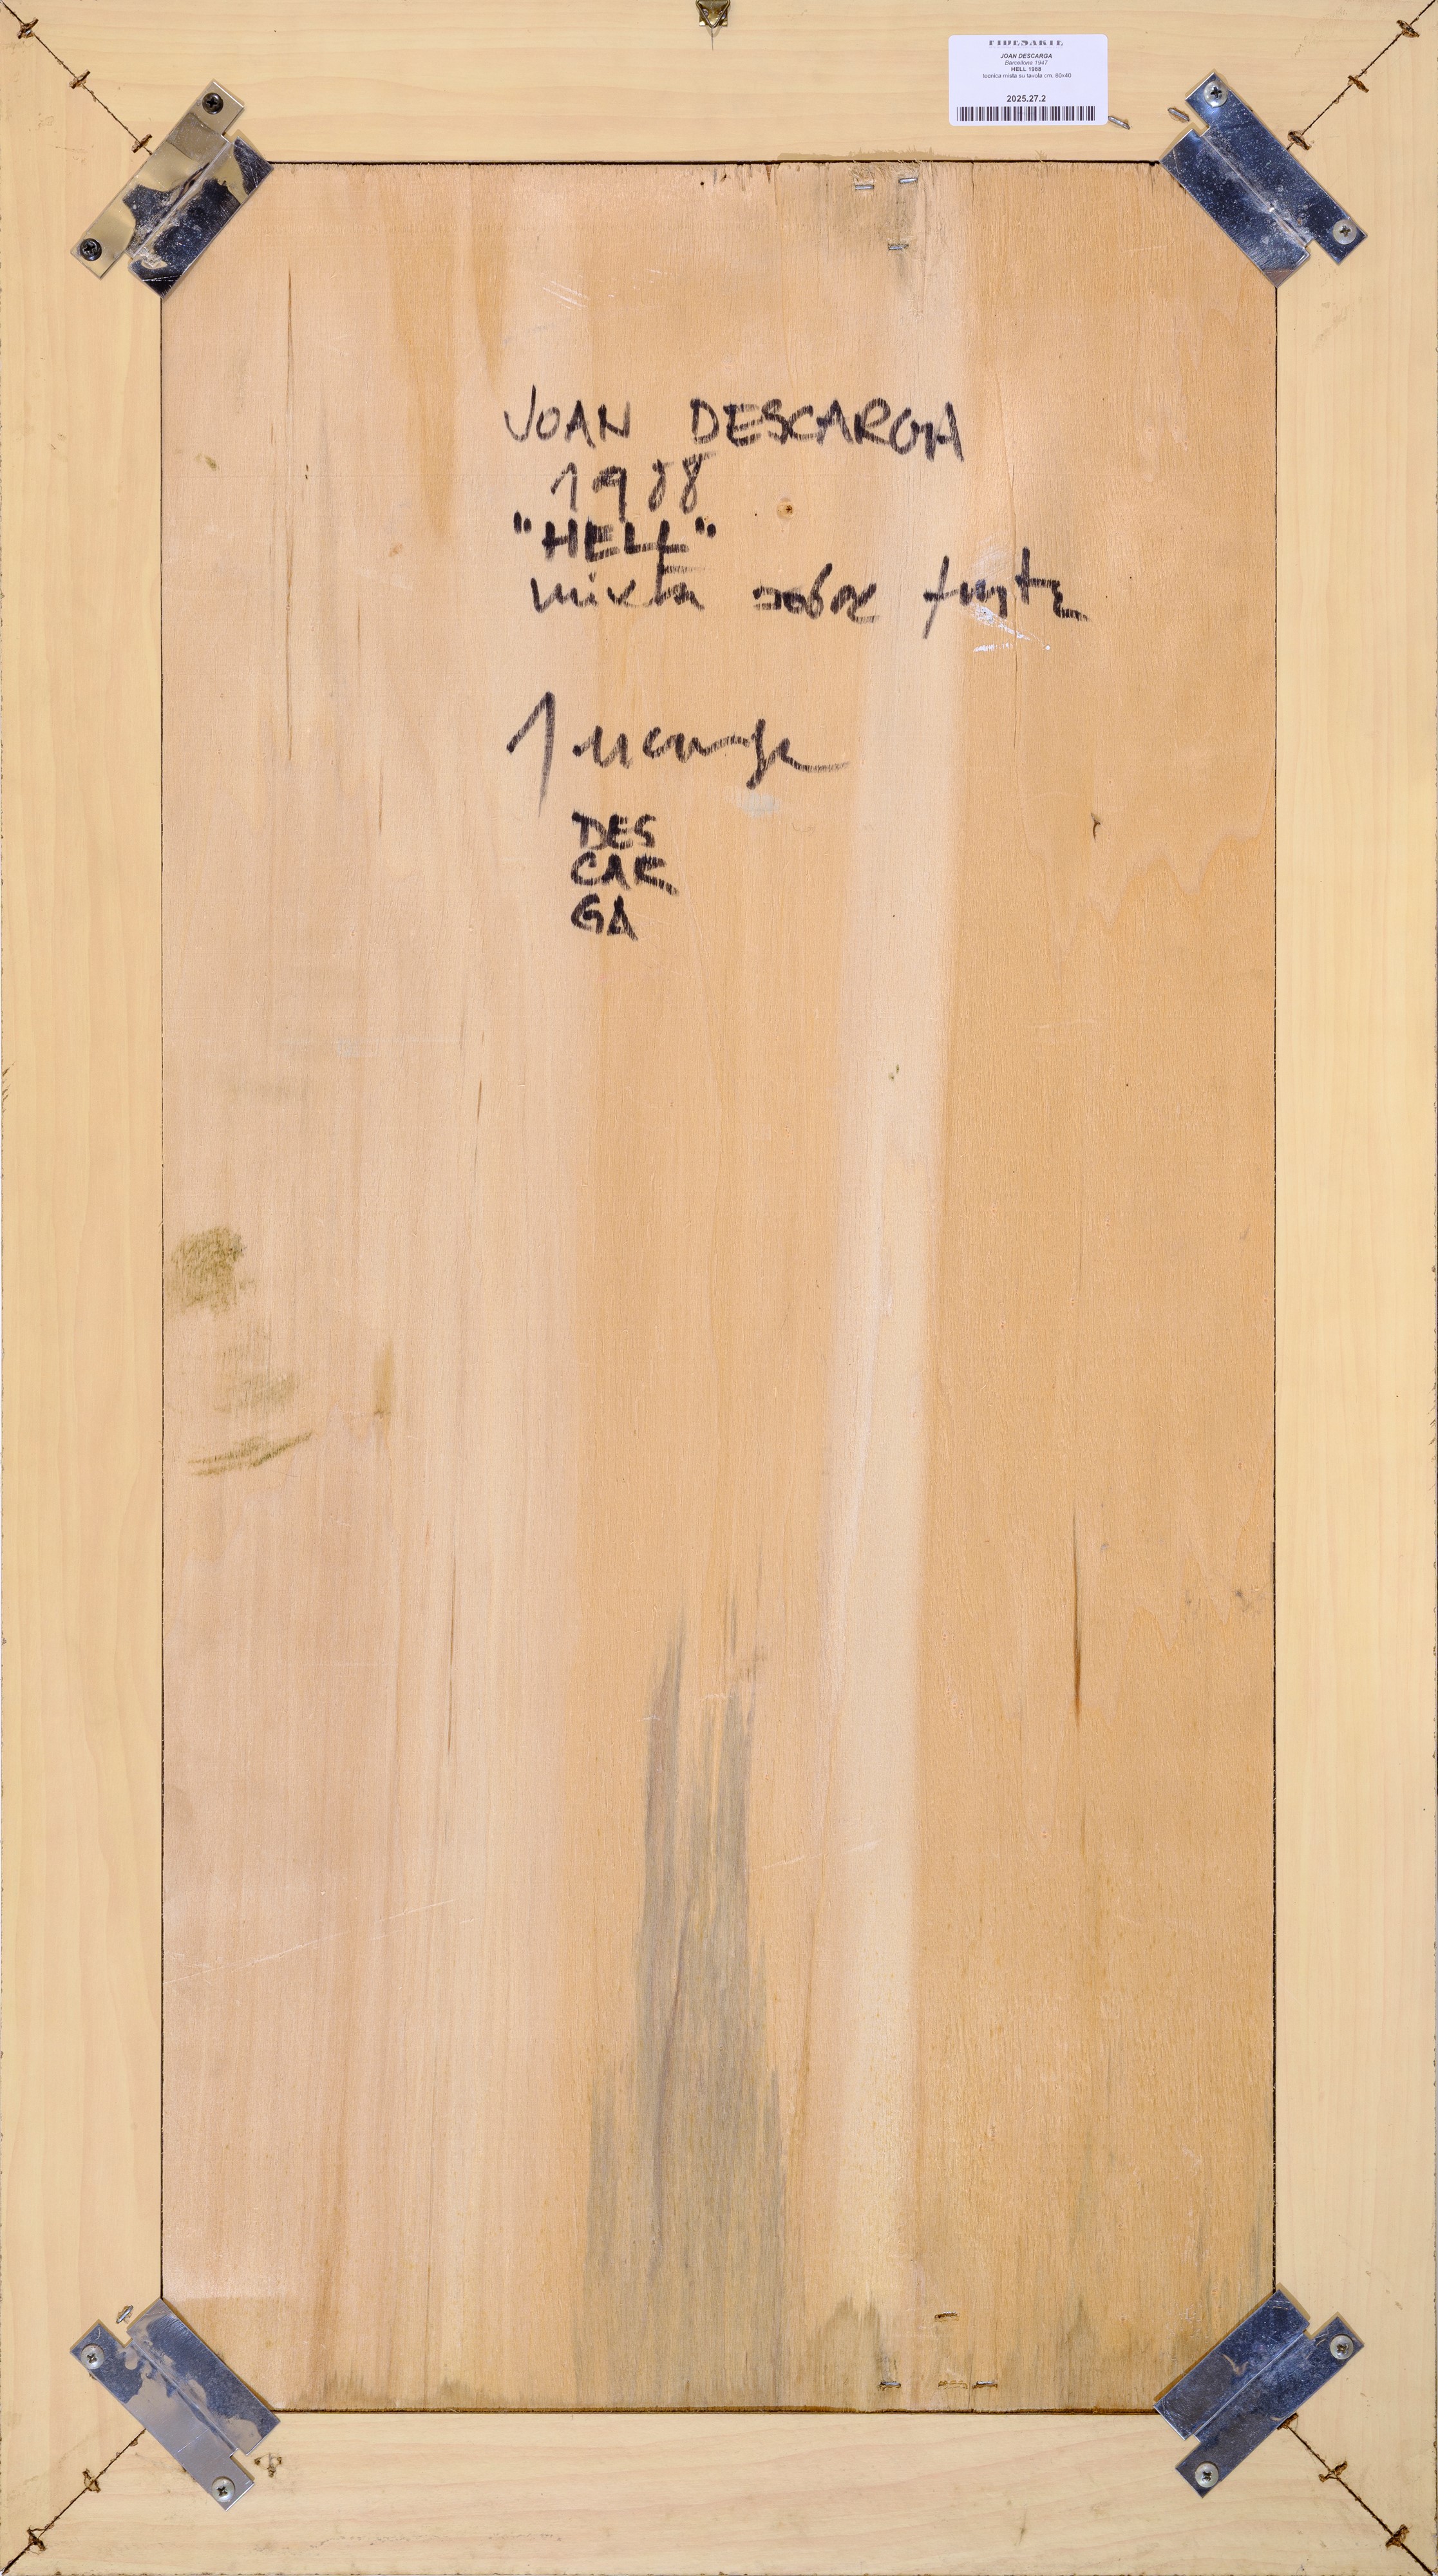 FIDESARTE
JOAN DESCARGA
Barcellona 1947
HELL 1988
tecnica mista su tavola cm. 80x40
2025.27.2
JOAN DESCARGA
1988
"HELL"
mixta sobre fusta
DES
CAR
GA